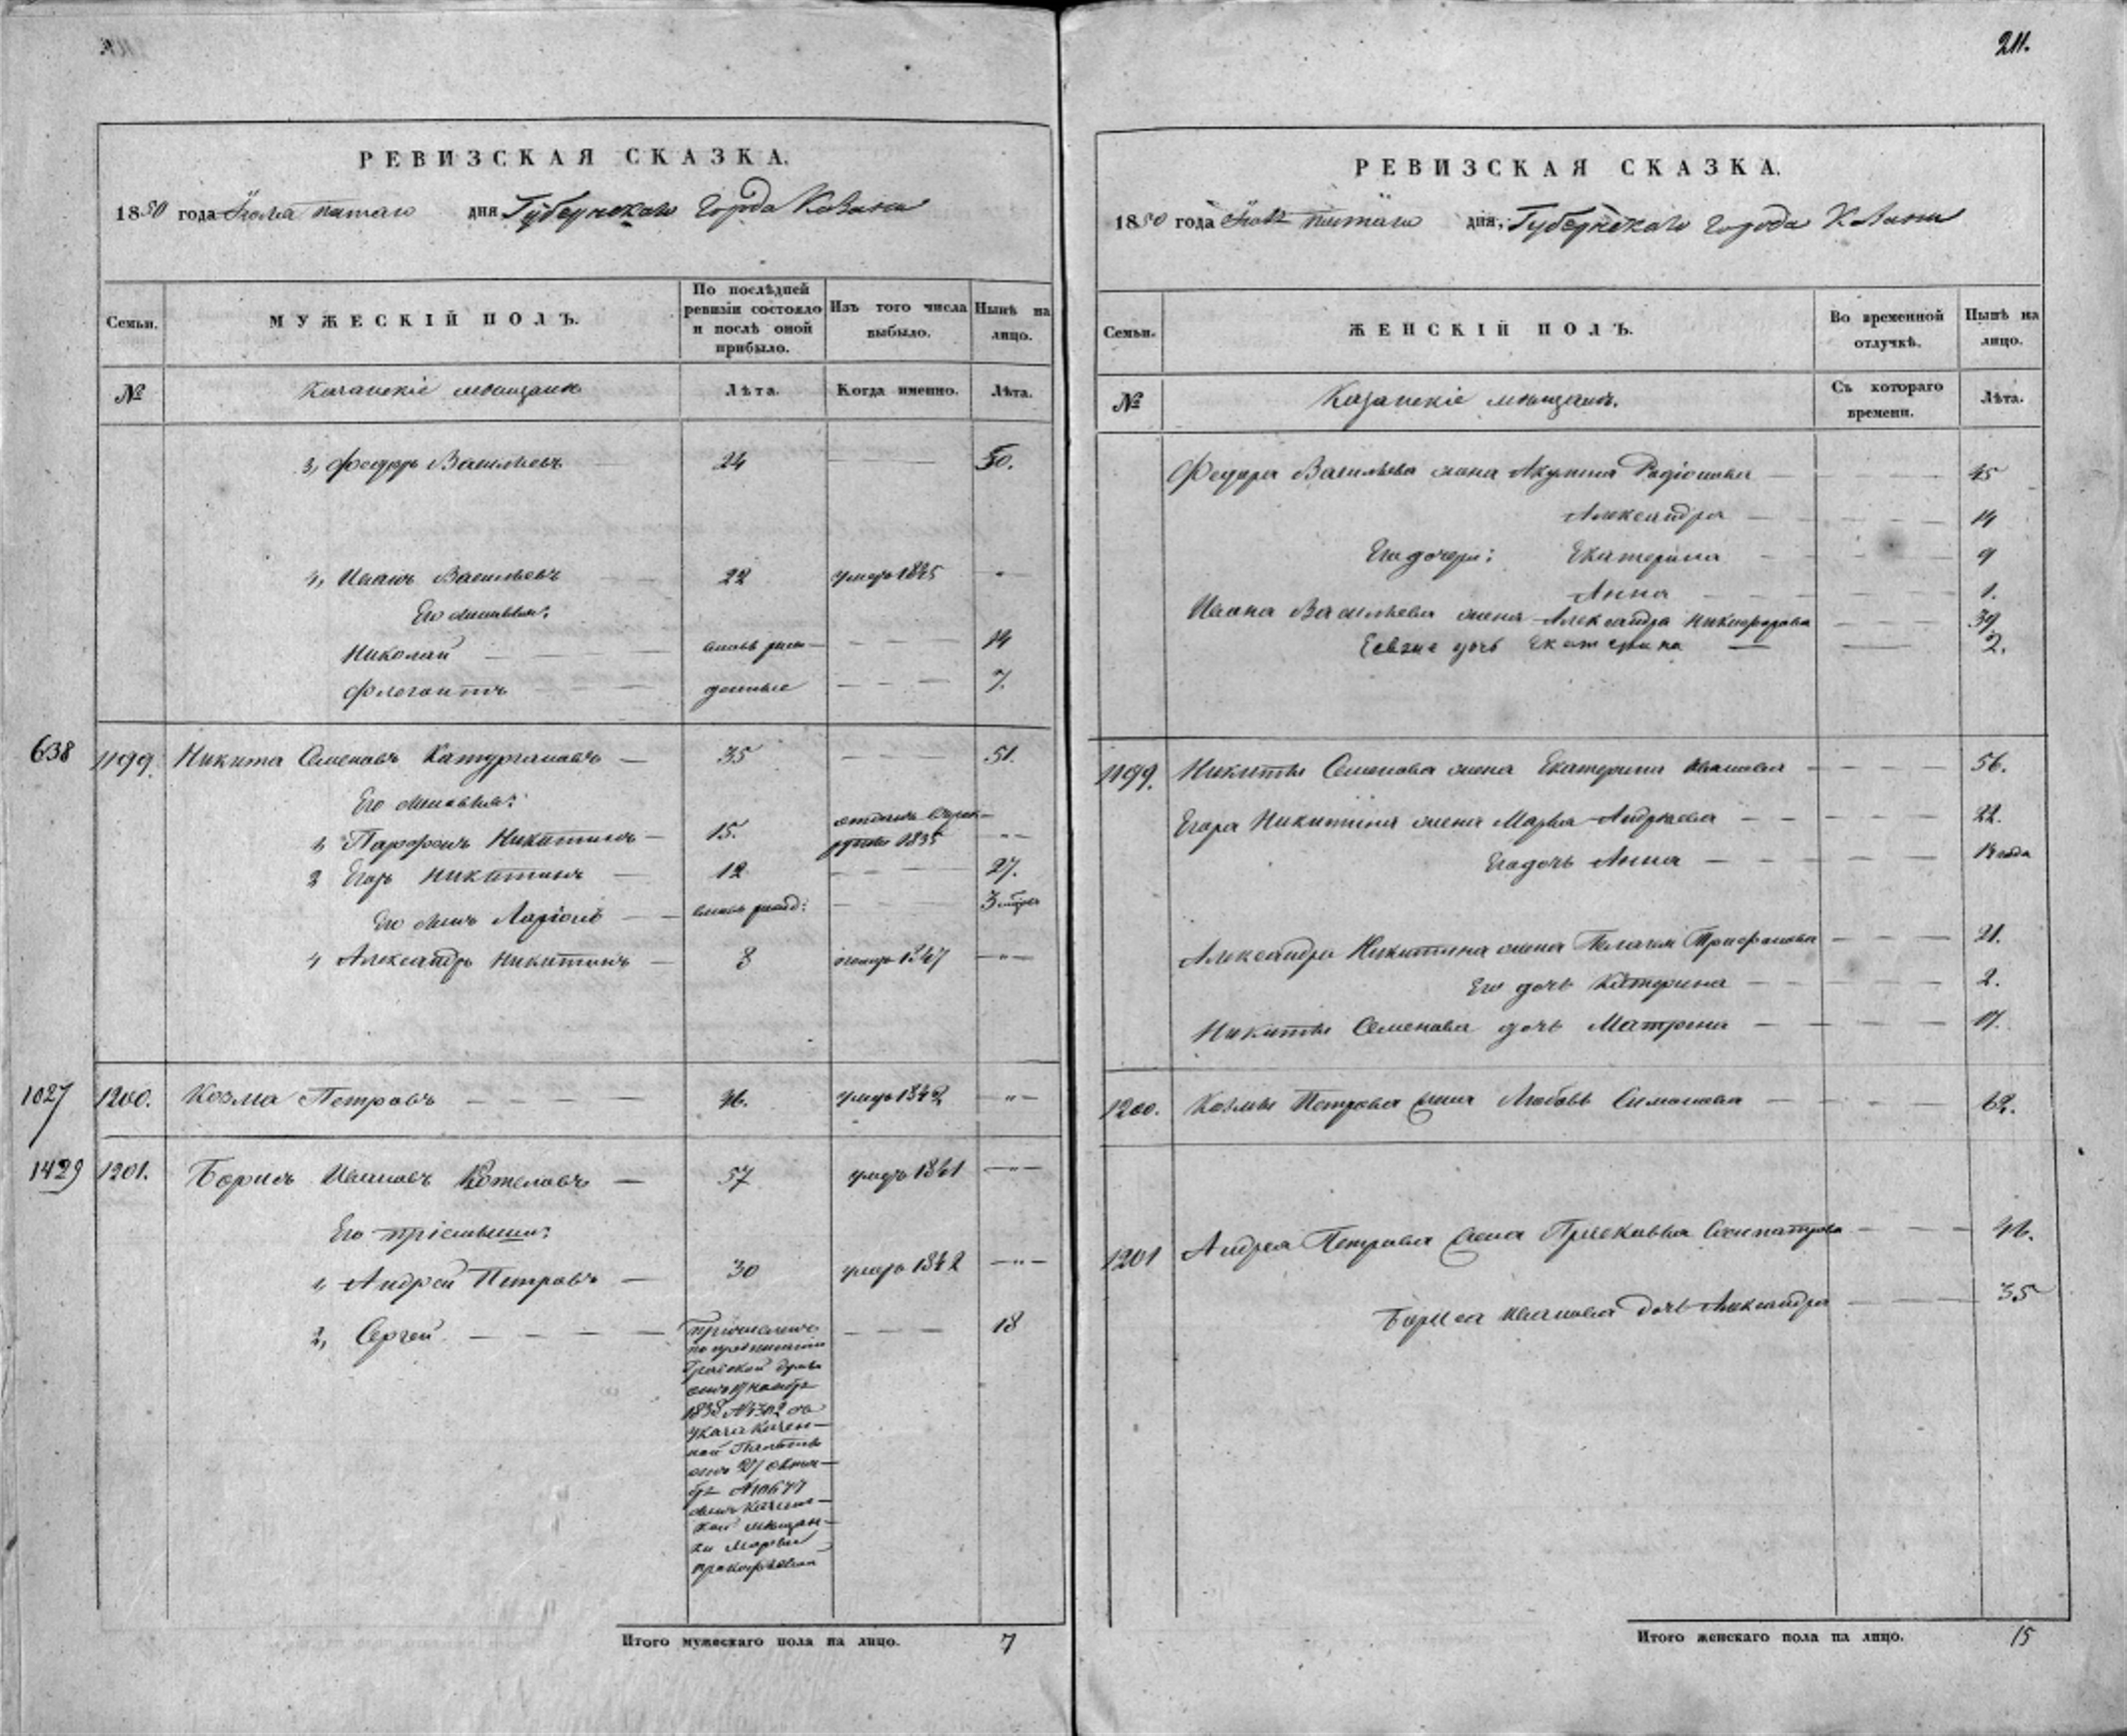 211.
РЕВИЗСКАЯ СКАЗКА.
1850 года пятаго дня Губернскаго Города Казани
Семьи.
МУЖЕСКІЙ ПОЛЪ.
По послѣдней ревизіи состояло и послѣ оной прибыло.
Изъ того числа выбыло.
Нынѣ на лицо.
№
Казанскіе мещане
Лѣта.
Когда именно.
Лѣта.
3, Федоръ Васильевъ 24 50.
4, Иванъ Васильевъ 22 умеръ 1845
Его сыновья:
Николай вновь рож- 14
Флегонтъ денные 7.
638 1199. Никита Семеновъ Катургановъ 35 51.
Его сыновья:
1, Парфенъ Никитинъ 15. отданъ въ рек-
руты 1835
2 Егоръ Никитинъ 12 27.
Его сынъ Ларіонъ вновь рожд: 3
4 Александръ Никитинъ 8 1847
1027 1200. Козма Петровъ 46. умеръ 1842
1429 1201. Борисъ Ивановъ Котеловъ 57 умеръ 1841
Его пріемыши:
1, Андрей Петровъ 30 умеръ 1842
2, Сергей 18
причисленъ
по предписанію
Градской думы
отъ 19 ноября
1838 № 4302
указа Казен-
ной Палаты
отъ 27 октя-
бря № 10677
сынъ Казанс-
кой мещан-
ки Марьи
Прокофьевой
Итого мужескаго пола на лицо. 7
РЕВИЗСКАЯ СКАЗКА.
1850 года пятаго дня, Губернскаго Города Казани
Семьи.
ЖЕНСКІЙ ПОЛЪ.
Во временной отлучкѣ.
Нынѣ на лицо.
№
Казанскіе мещане.
Съ котораго времени.
Лѣта.
Федора Васильева жена Акулина Родіонова 45
Александра 14
Его дочери: Екатерина 9
Анна 1.
Ивана Васильева жена Александра Никифорова 39
дочь Екатерина 2.
1199. Никиты Семенова жена Екатерина Иванова 56.
Егора Никитина жена Марья Андреева 22.
Его дочь Анна года
Александра Никитина жена Пелагея Трифонова 21.
Его дочь Катерина 2.
Никиты Семенова дочь Матрена 17.
1200. Козмы Петрова жена Любовь Симонова 62.
1201 Андрея Петрова жена Прасковья 46.
Бориса Иванова дочь Александра 35
Итого женскаго пола на лицо. 15